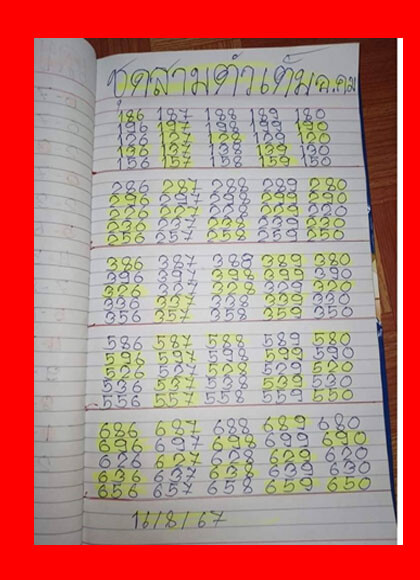 ชุดสามตัวเต็ม ฉ.คม
186 187 188 189 180
196 197 198 199 190
126 127 128 129 120
136 137 138 139 130
156 157 158 159 150
286 287 288 289 280
296 297 298 299 290
226 227 228 229 220
236 237 238 239 230
256 257 258 259 250
386 387 388 389 380
396 397 398 399 390
326 327 328 329 320
336 337 338 339 330
356 357 358 359 350
586 587 588 589 580
596 597 598 599 590
526 527 528 529 520
536 537 538 539 530
556 557 558 559 550
686 687 688 689 680
696 697 698 699 690
626 627 628 629 620
636 637 638 639 630
656 657 658 659 650
16/8/67